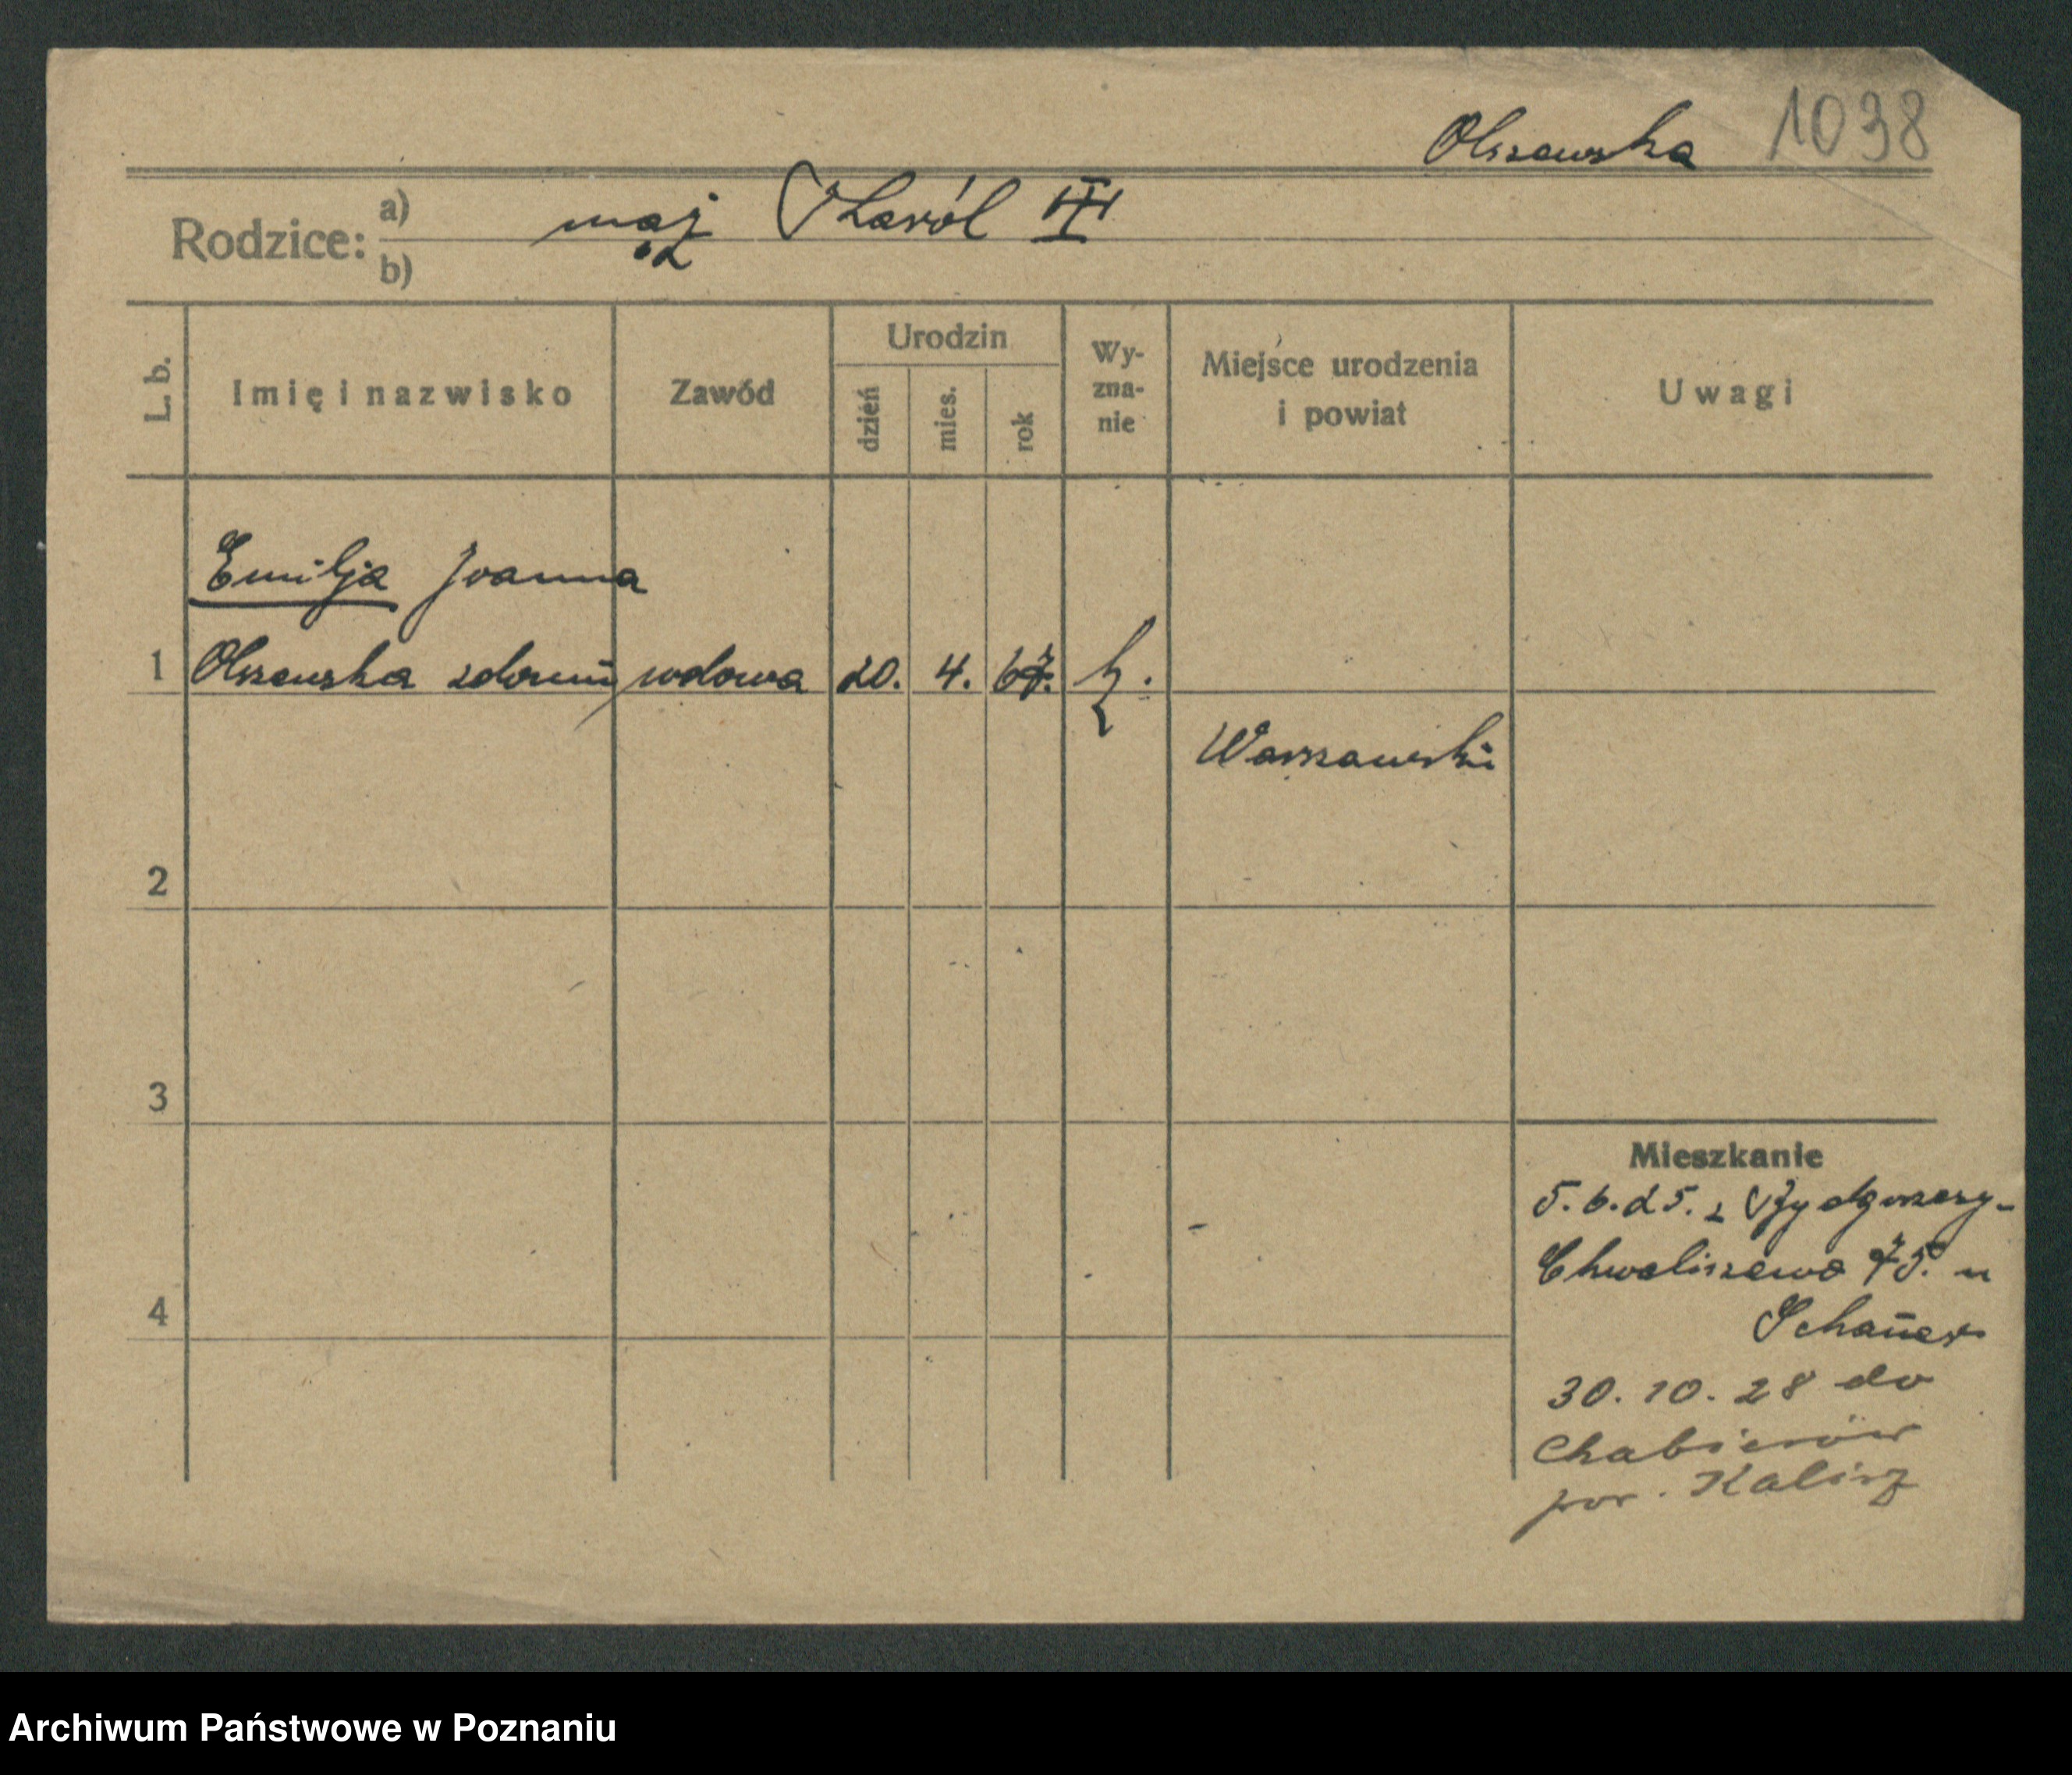 Olszewska 1098
Rodzice: a) mąż Karól III
b) oż
L. b. Imię i nazwisko Zawód Urodzin dzień mies. rok Wy-zna-nie Miejsce urodzenia i powiat Uwagi
Emilja Joanna
1 Olszewska wdowa 20. 4. 67. k.
Warszawski
2
3
Mieszkanie
5.6.25. z Bydgoszczy-
Chwaliszewo 75. u
4
30.10.28 do
pow. Kalisz
Archiwum Państwowe w Poznaniu